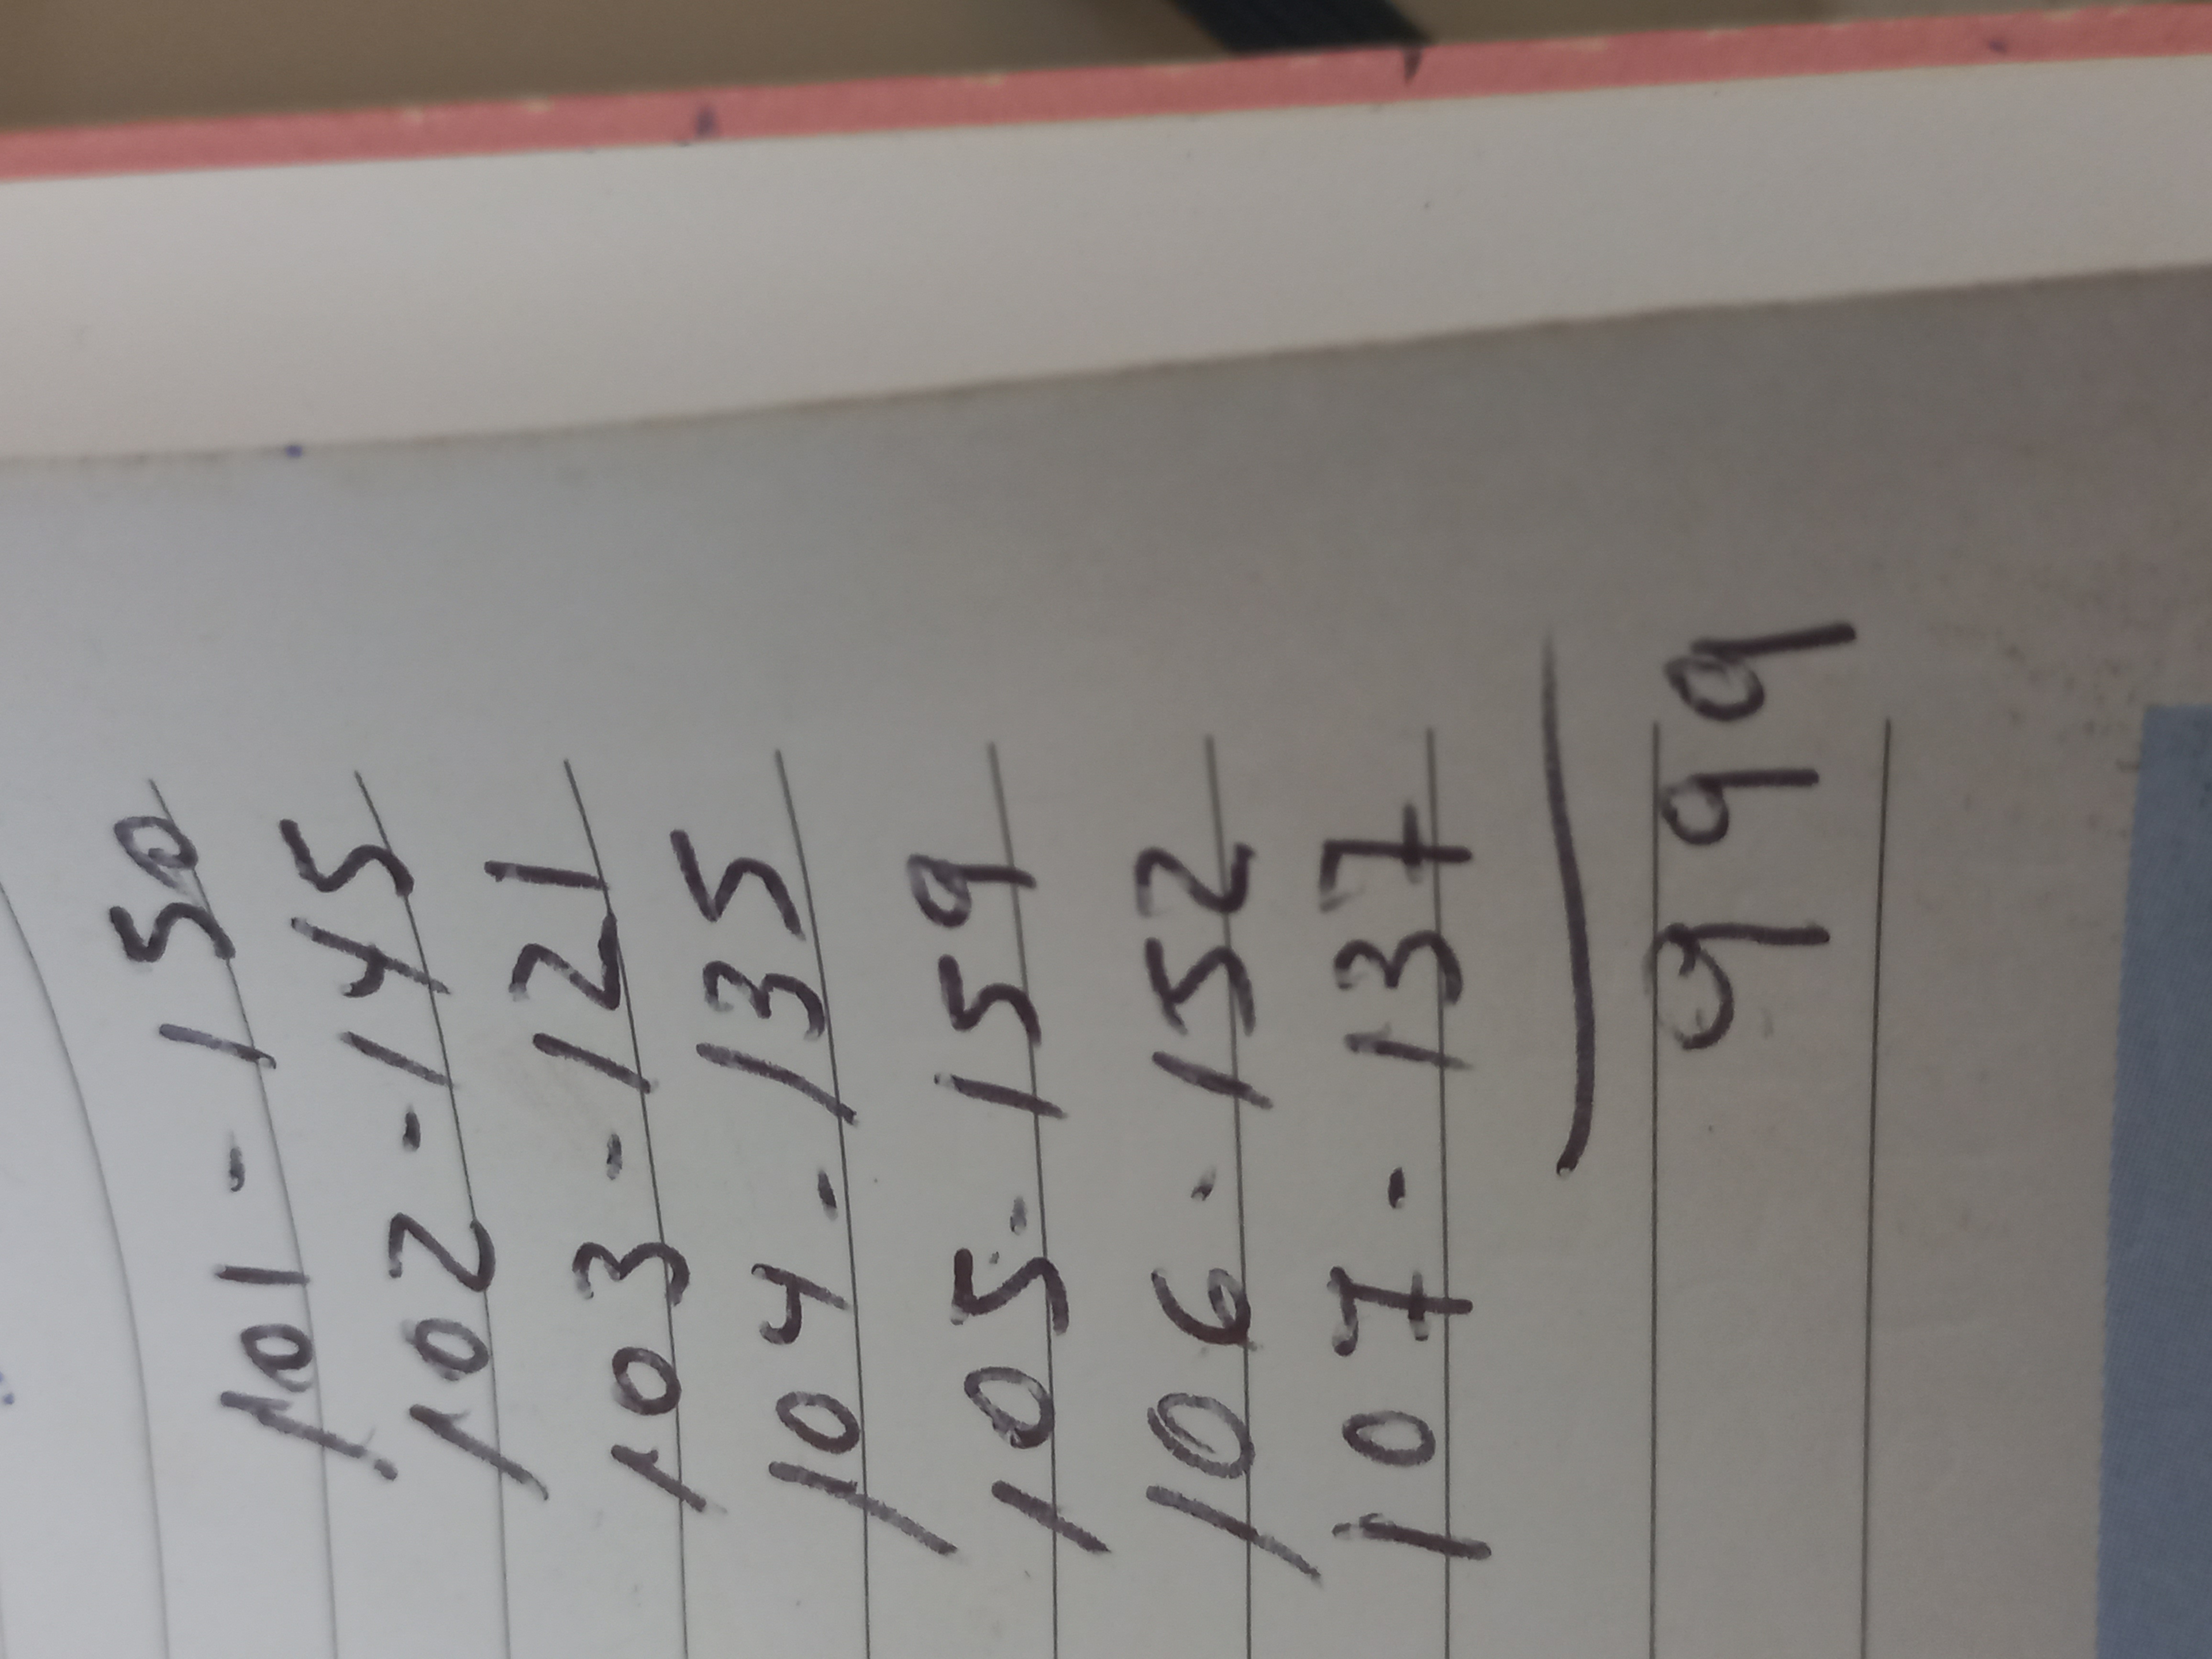 101 - 150
102 - 145
103 - 121
104 - 135
105 - 159
106 - 152
107 - 137
999